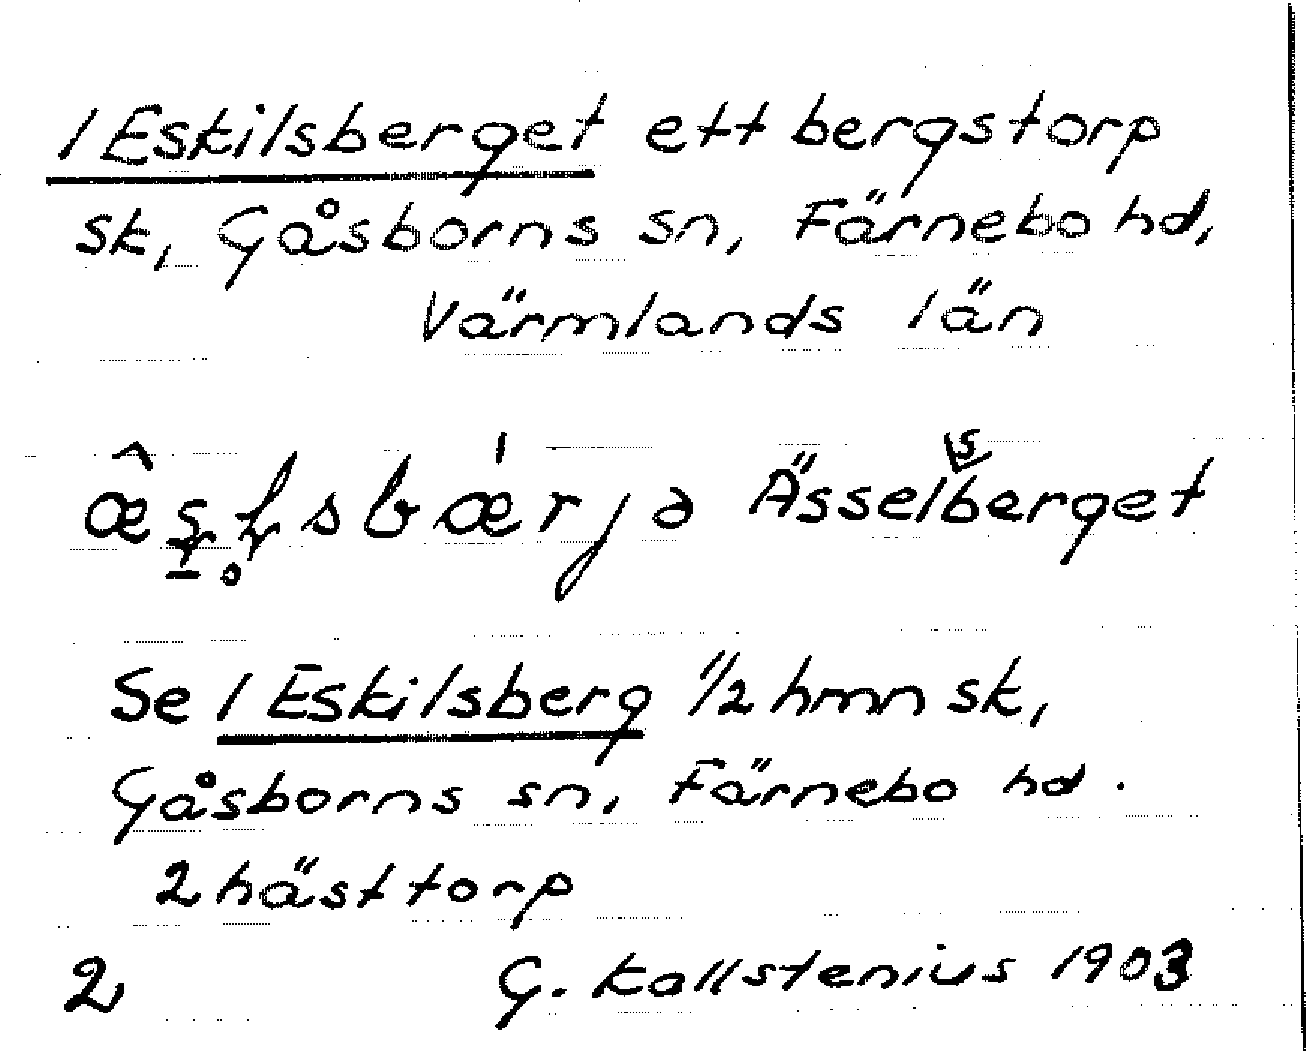 1 Eskilsberget ett bergstorp
sk, Gåsborns sn, Färnebo hd,
Värmlands län
Ässelsberget
Se 1 Eskilsberg 1/2 hmn sk,
Gåsborns sn, Färnebo hd.
2 hästtorp
2 G. Kallstenius 1903